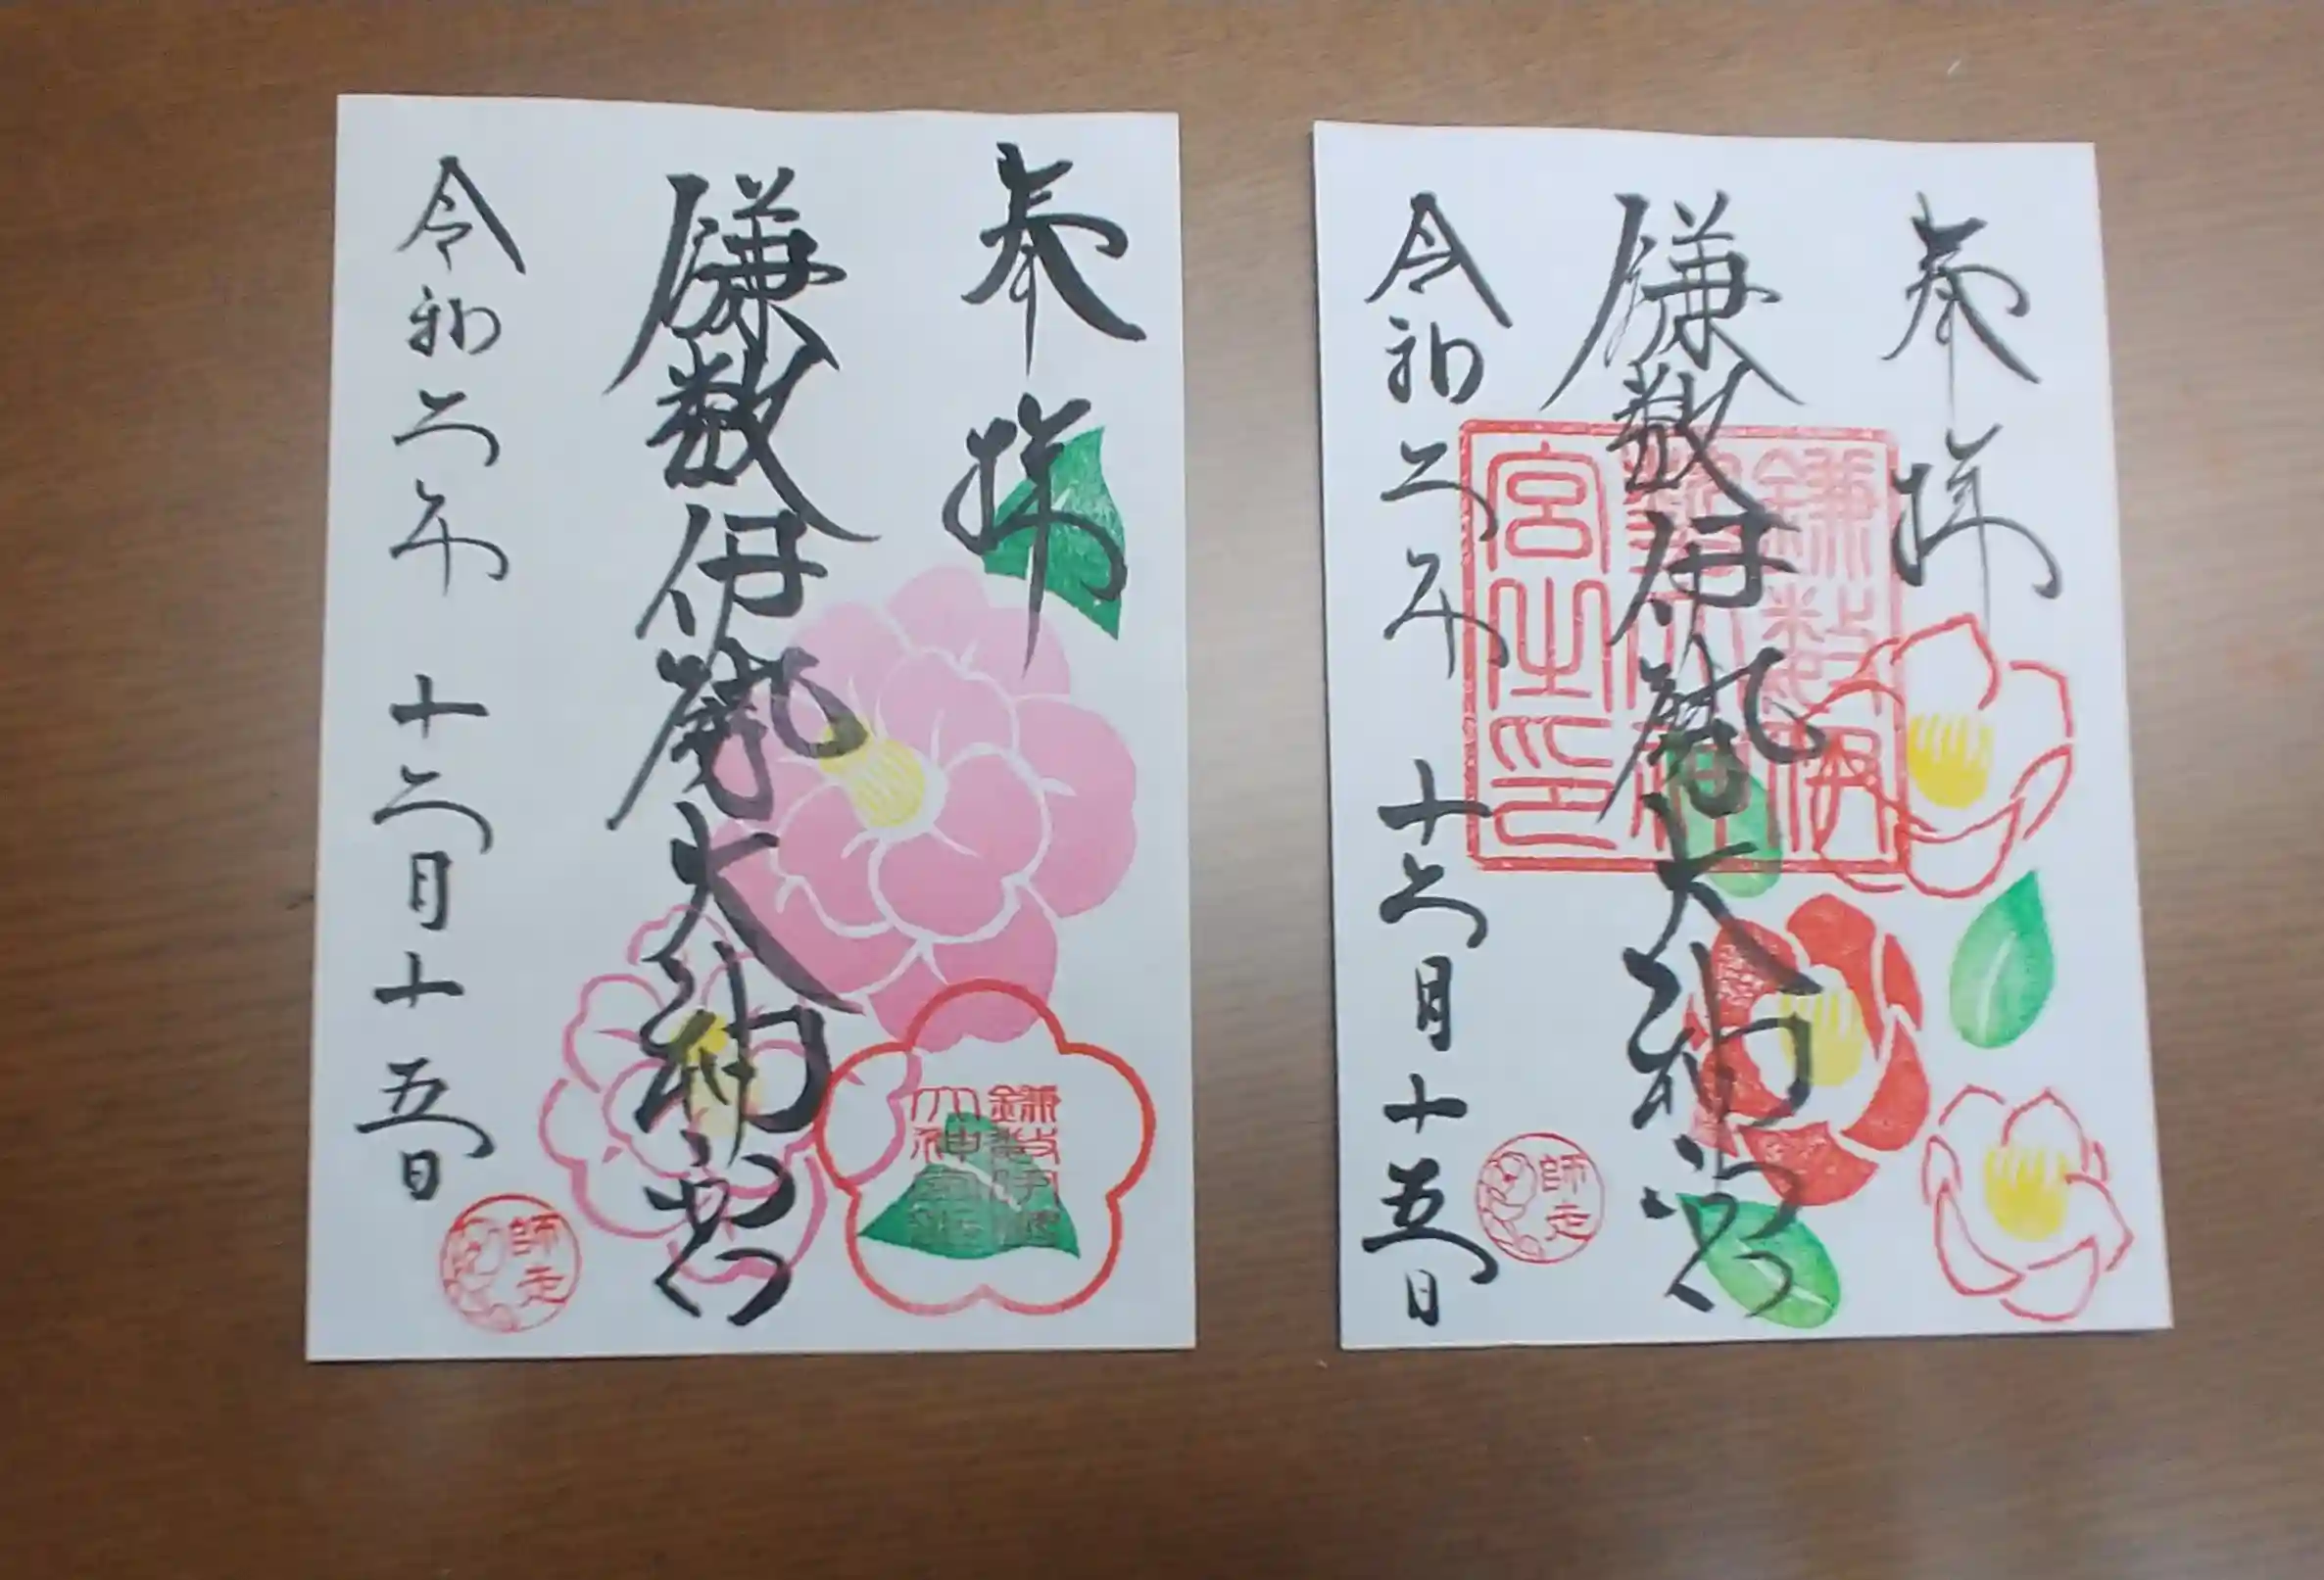 奉拝
鎌数伊勢大神宮
令和二年 十二月十五日
鎌数伊勢
大神宮
師走
奉拝
鎌数伊勢大神宮
令和二年 十二月十五日
鎌数伊
勢大神
宮之印
師走